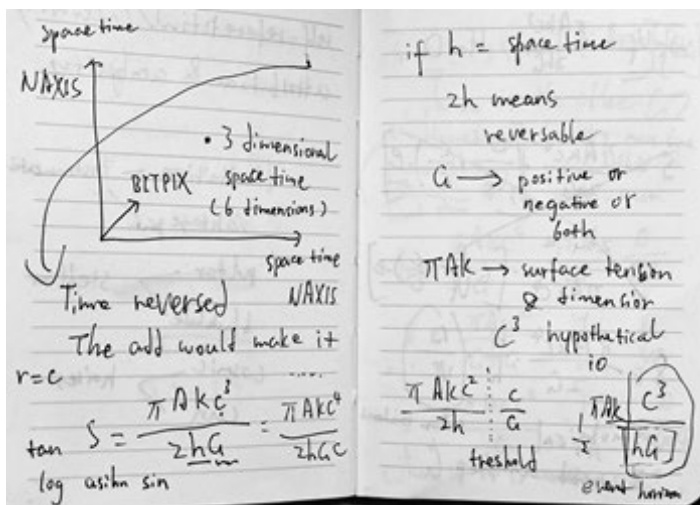 space time
NAXIS
• 3 dimensional
BITPIX
space time
(6 dimensions)
space time
NAXIS
Time reversed
The add would make it
r=c
.....
S = πAkc³/2hG = πAkc⁴/2hGc
tan
log asihn sin
if h = space time
2h means
reversable
G → positive or
negative or
both
πAK → surface tension
& dimension
C³ hypothetical
io
πAkc²/2h c/G
treshold
1/2 πAk C³/[hG]
event horizon